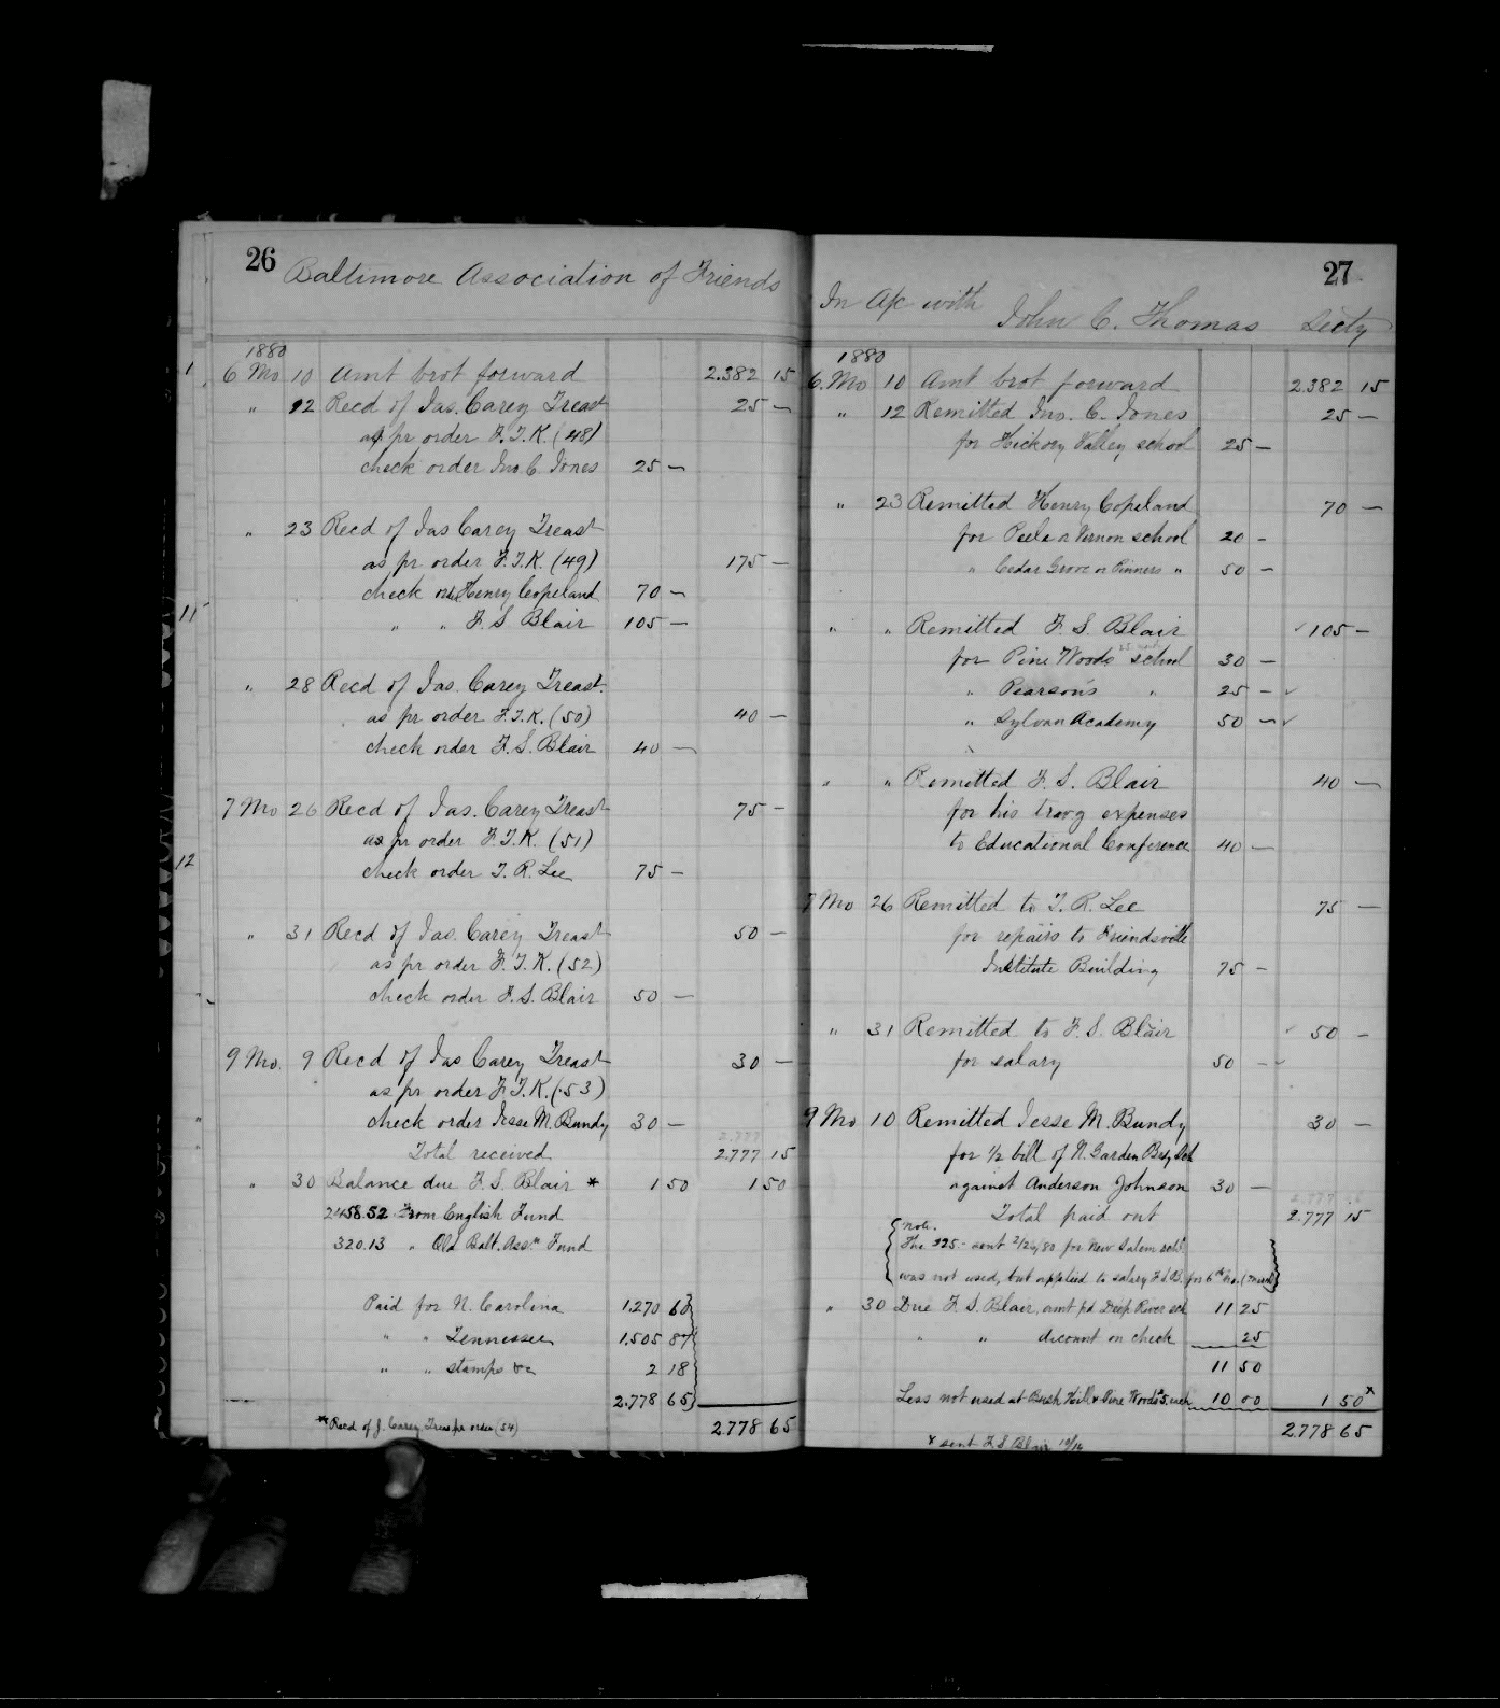 26
Baltimore Association of Friends
1880
1
6 Mo 10 Amt brot forward 2.382 15
" 12 Recd of Jas. Carey Treast 25 —
as pr order F.T.K. (48)
check order Jno C Jones 25 —
" 23 Recd of Jas Carey Treast
as pr order F.T.K. (49) 175 —
check ord Henry Copeland 70 —
11
" " F. S Blair 105 —
" 28 Recd of Jas. Carey Treast.
as pr order F.T.K. (50) 40 —
check order F. S. Blair 40 —
7 Mo 26 Recd of Jas. Carey Treast 75 —
as pr order F.T.K. (51)
12
check order J. R. Lee 75 —
" 31 Recd of Jas. Carey Treast 50 —
as pr order F.T.K. (52)
check order F. S. Blair 50 —
9 Mo. 9 Recd of Jas Carey Treast 30 —
as pr order F.T.K. (53)
check order Jesse M. Bundy 30 —
Total received 2.777 15
" 30 Balance due F. S. Blair * 1 50 1 50
2458.52 From English Fund
320.13 " Old Balt. Assn Fund
Paid for N. Carolina 1.270 60
" " Tennessee 1.505 87
" " stamps &c 2 18
2.778 65
2778 65
* Recd of J. Carey, Treas pr order (54)
27
In A/c with John C. Thomas Secty
1880
6 Mo 10 Amt brot forward 2.382 15
" 12 Remitted Jno. C. Jones 25 —
for Hickory Valley school 25 —
" 23 Remitted Henry Copeland 70 —
for Peele or Vernon school 20 —
" Cedar Grove or Pinners " 50 —
" " Remitted F. S. Blair ✓ 105 —
for Pine Woods school 30 —
" Pearson's " 25 — ✓
" Sylvan Academy 50 — ✓
" " Remitted F. S. Blair 40 —
for his travg expenses
to Educational Conference 40 —
7 Mo 26 Remitted to J. R. Lee 75 —
for repairs to Friendsville
Institute Building 75 —
" 31 Remitted to F. S. Blair ✓ 50 —
for salary 50 — ✓
9 Mo 10 Remitted Jesse M. Bundy 30 —
for 1/2 bill of N. Garden Brdg Sch
against Anderson Johnson 30 —
Total paid out 2.777 15
note.
The $25- sent 2/26/80 for New Salem schl
was not used, but applied to salary F.S.B. for 6th Mo.
" 30 Due F. S. Blair, amt pd Deep River sch 11 25
" " discount on check 25
11 50
Less not used at Bush Hill & Pine Woods $5 each 10 00 1 50*
2778 65
* sent F. S Blair 10/14